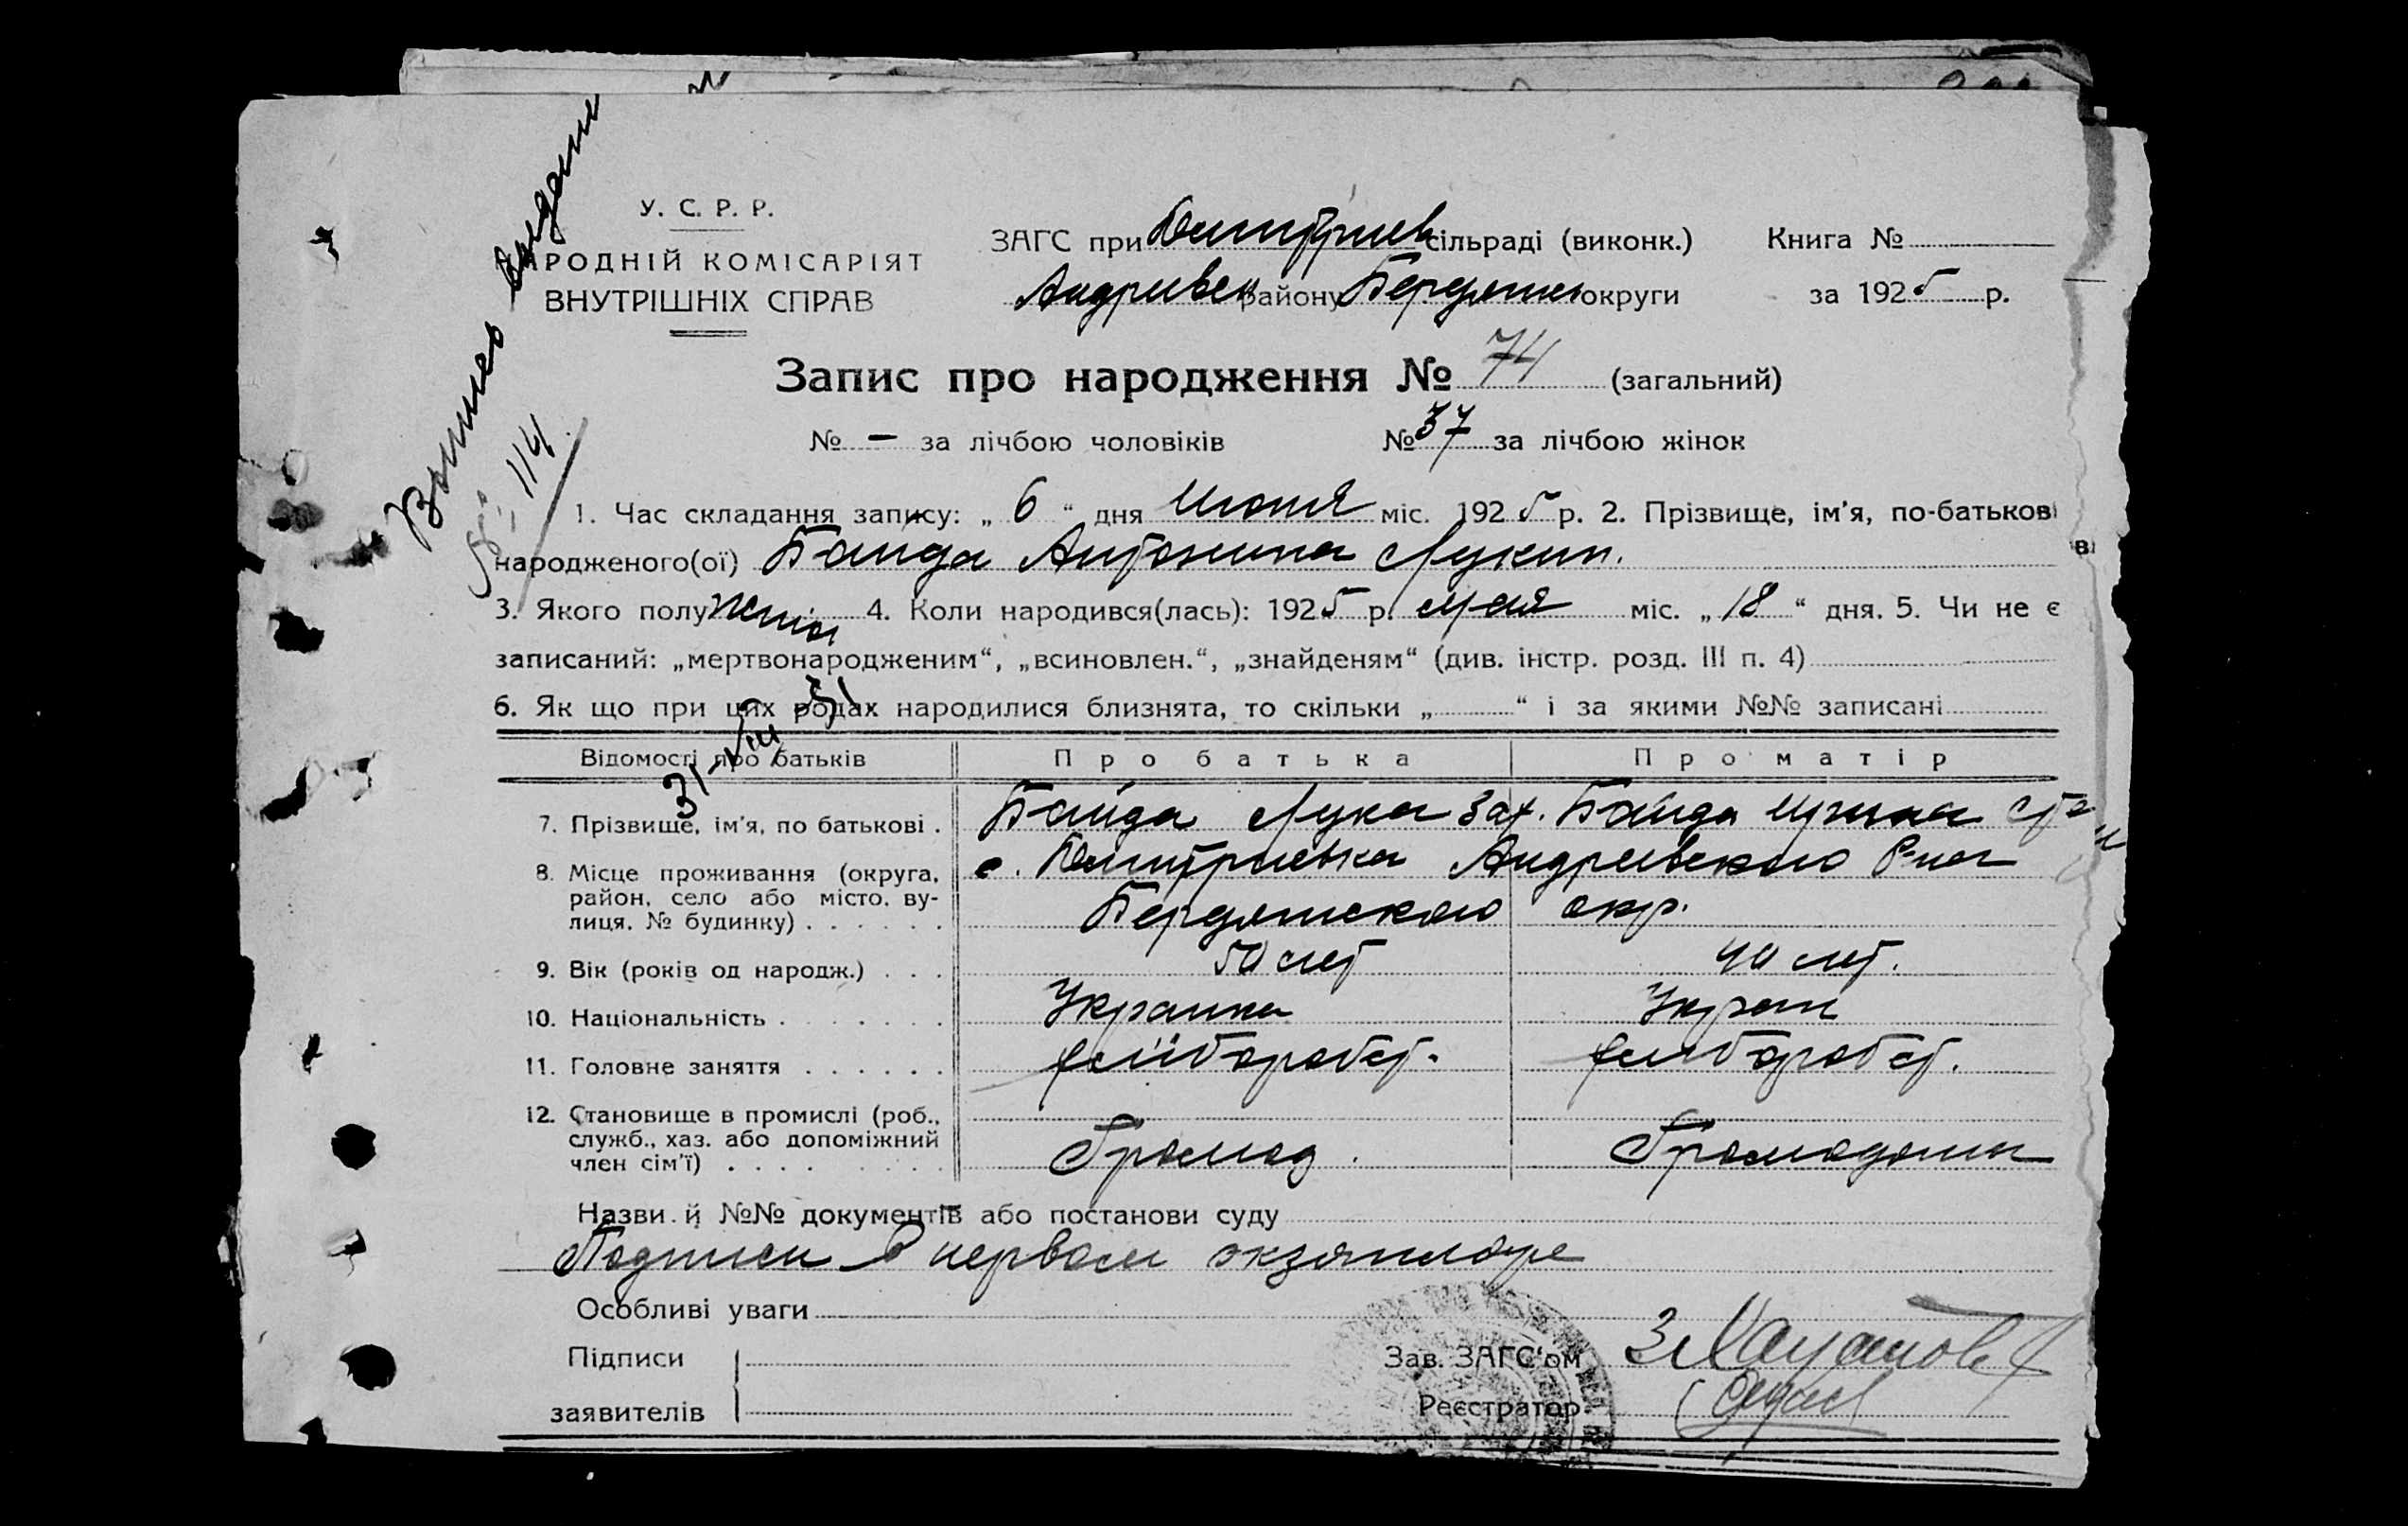 Выпись выдана
31-VIII 51
№ 114
У. С. Р. Р.
НАРОДНІЙ КОМІСАРІЯТ
ВНУТРІШНІХ СПРАВ
ЗАГС при Дмитриев сільраді (виконк.) Книга №
Андриевск Району Бердянск округи за 1925 р.
Запис про народження № 74 (загальний)
№ — за лічбою чоловіків № 37 за лічбою жінок
1. Час складання запису: „ 6 “ дня Июня міс. 1925 р. 2. Прізвище, ім’я, по-батькові
народженого(ої) Байда Антонина Лукин.
3. Якого полу 4. Коли народився(лась): 1925 р. мая міс. „ 18 “ дня. 5. Чи не є
записаний: „мертвонародженим“, „всиновлен.“, „знайденям“ (див. інстр. розд. III п. 4)
6. Як що при цих родах народилися близнята, то скільки „ “ і за якими №№ записані
Відомості про батьків Про батька Про матір
7. Прізвище, ім’я, по батькові . Байда Лука Зах. Байда
8. Місце проживання (округа, с. Дмитриевка Андриевского Р-на
район, село або місто, ву- Бердянского окр.
лиця, № будинку) . . . . . .
9. Вік (років од народж.) . . . 50 лет 40 лет.
10. Національність . . . . . . . Украинец Украин
11. Головне заняття . . . . . . хлібороб хлібороб
12. Становище в промислі (роб.,
служб., хаз. або допоміжний Громад. Громадянк
член сім’ї) . . . . . . . . .
Назви й №№ документів або постанови суду
Подписи в первом экземпляре
Особливі уваги
Підписи Зав. ЗАГС‘ом
заявителів Реєстратор